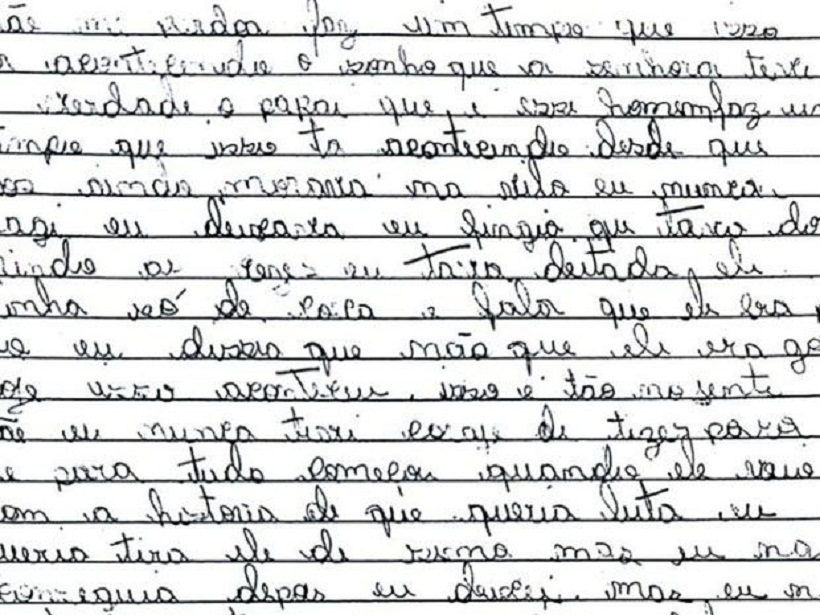 mi perdoa faz um tempo que isso
acontecendo o sonho que a senhora teve
verdade o papai que e esse homem faz um
que isso ta acontecendo desde que
ainda morava na vila eu nunca
eu deixava eu fingia qu tava do
as vezes eu tava deitada ele
vinha só de e falar que ele era
eu dizia que não que ele era
isso aconteceu isso é tão no sente
eu nunca tivi coraje de tizez para
para tudo começou quando ele veio
com a historia de que queria luta eu
queria tira ele de sima mas eu na
conseguia depos eu deixei mas eu n